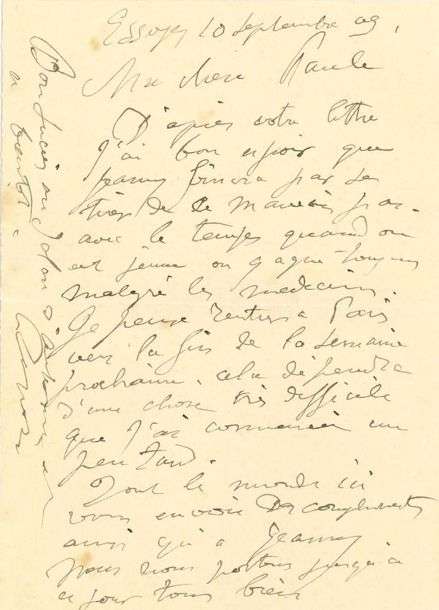 Essoyes 10 Septembre 09.
Ma chère Paule
D'après votre lettre
j'ai bon espoir que
Jeanny finira par se
tirer de ce mauvais pas.
avec le temps quand on
est jeune on gagne toujours
malgré les medecins.
Je pense rentrer à Paris
vers la fin de la semaine
prochaine. cela dépendra
d'une chose très difficile
que j'ai commencée un
peu tard.
Tout le monde ici
vous envoie des compliments
ainsi qu'à Jeanny
nous nous portons jusqu'à
ce jour tous bien
à bientôt.
Renoir